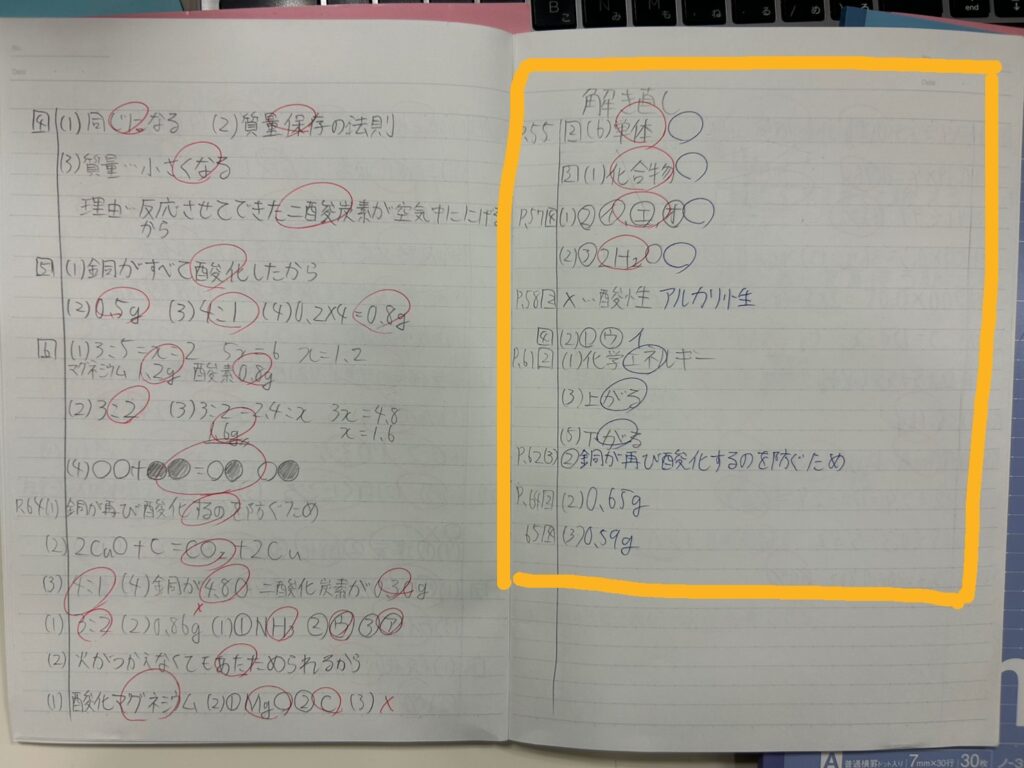 4 (1) 同じになる (2) 質量保存の法則
(3) 質量…小さくなる
理由…反応させてできた二酸炭素が空気中ににげる
から
5 (1) 銅がすべて酸化したから
(2) 0.5g (3) 4:1 (4) 0.2×4=0.8g
6 (1) 3:5=x:2 5x=6 x=1.2
マグネシウム 1.2g 酸素 0.8g
(2) 3:2 (3) 3:2=2.4:x 3x=4.8
1.6g x=1.6
(4) ○○+●●=○● ○●
P.64 (1) 銅が再び酸化するのを防ぐため
(2) 2CuO+C=CO₂+2Cu
(3) 4:1 (4) 銅が4.80 二酸化炭素が
(1) 3:2 (2) 0.86g (1)①NH₃ ②ウ ③ア
(2) 火がつかえなくてもあたためられるから
(1) 酸化マグネシウム (2)①MgO ②C (3) ×
解き直し
P.55 2 (6) 単体
(1) 化合物
P.57 (1) ② イ, エ, オ
(2) ③ 2H₂O
P.58 2 ×…酸性 アルカリ性
4 (2) ① ウ イ
P.61 2 (1) 化学エネルギー
(3) 上がる
(5) 下がる
P.62 (3) ② 銅が再び酸化するのを防ぐため
P.64 (2) 0.65g
65 (3) 0.59g
B こ N み M も , ね . る / め ろ end
A 普通横罫 ドット入り 7mm×30行 30枚